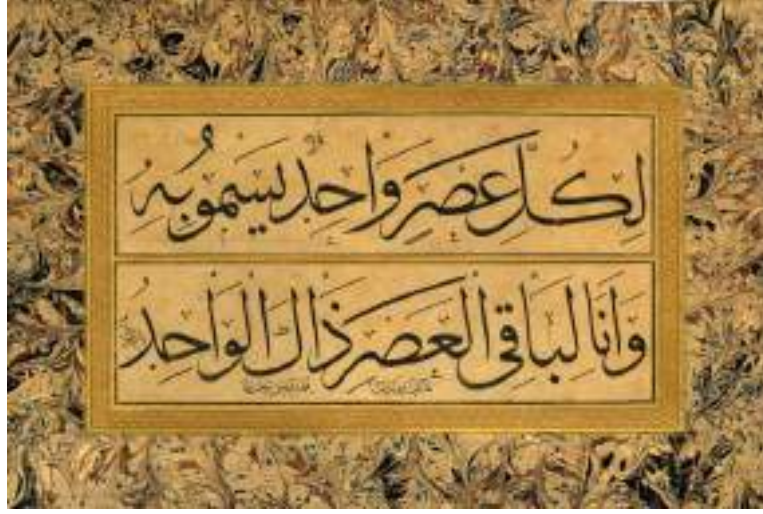 لِكُلِّ عَصْرٍ وَاحِدٌ يَسْمُو بِهِ
وَأَنَا لِبَاقِي الْعَصْرِ ذَاكَ الْوَاحِدُ